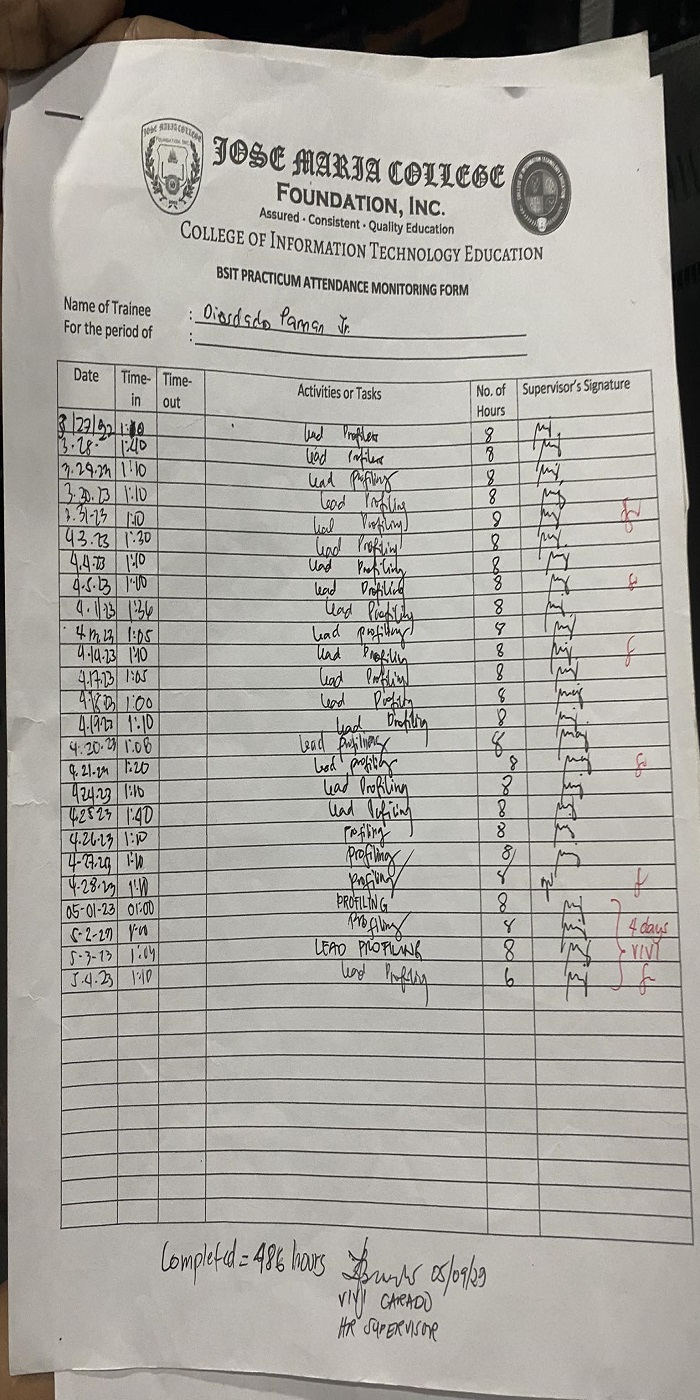 JOSE MARIA COLLEGE
FOUNDATION, INC.
Assured · Consistent · Quality Education
COLLEGE OF INFORMATION TECHNOLOGY EDUCATION
BSIT PRACTICUM ATTENDANCE MONITORING FORM
Name of Trainee : Diosdado Paman Jr.
For the period of :
Date Time-in Time-out Activities or Tasks No. of Hours Supervisor's Signature
Lead Profilers 8
3.28. 1:40 Lead 8
3.29.23 1:10 Lead Profiling 8
3.30.23 1:10 Lead Profiling 8
3.31-23 1:10 Lead Profiling 8
4.3.23 1:30 Lead Profiling 8
4.4.23 1:10 Lead Profiling 8
4.5.23 1:00 Lead Profiling 8
1:36 Lead Profiling 8
4.13.23 1:05 Lead Profiling 8
4.14.23 1:10 Lead Profiling 8
4.17.23 1:05 Lead Profiling 8
4.18.23 1:00 Lead Profiling 8
4.19.23 1:10 Lead Profiling 8
4.20.23 1:08 Lead Profiling 8
4.21.23 1:20 Lead Profiling 8
4.24.23 1:10 Lead Profiling 8
4.25.23 1:40 Lead Profiling 8
4.26.23 1:10 Profiling 8
1:10 Profiling 8
4-28.23 1:10 Profiling 8
05-01-23 01:00 PROFILING 8
Profiling 8 4 days
5-3-23 1:04 LEAD PROFILING 8 VIVI
5.4.23 1:10 Lead Profiling 6
Completed = 486 hours 05/09/23
VIVI CARADO
HR SUPERVISOR